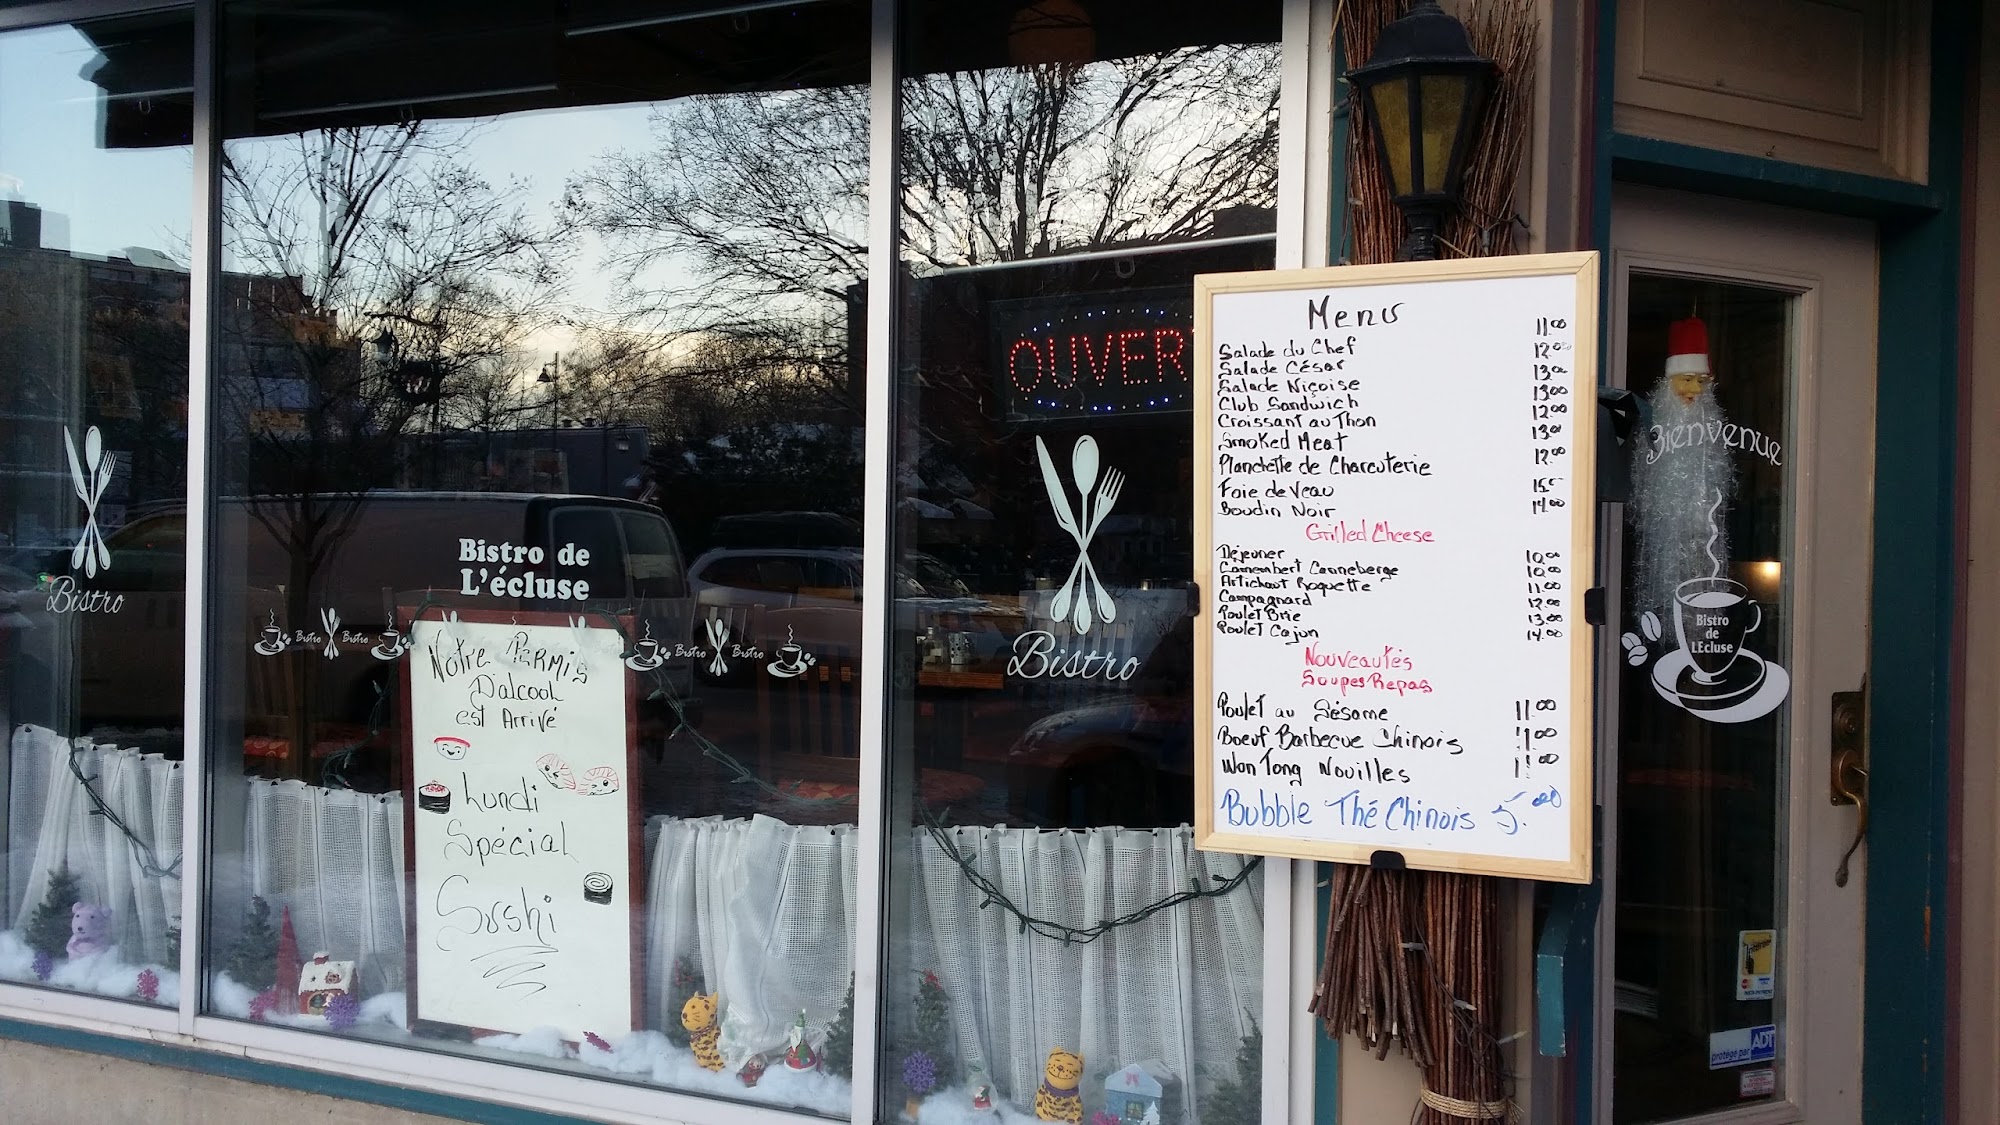 Bistro
Bistro de
L'écluse
Bistro Bistro
Bistro Bistro
Notre Permis
D'alcool
est Arrivé
Lundi
Spécial
Sushi
OUVER
Bistro
Menu
11.00
Salade du Chef 12.00
Salade César 13.00
Salade Niçoise 13.00
Club Sandwich 12.00
Croissant au Thon 13.00
Smoked Meat 12.00
Planchette de Charcuterie
Foie de Veau 15.-
Boudin Noir 14.00
Grilled Cheese
Déjeuner 10.00
Camembert Canneberge 10.00
Artichaut Roquette 11.00
Campagnard 12.00
Poulet Brie 13.00
Poulet Cajun 14.00
Nouveautés
Soupes Repas
Poulet au Sésame 11.00
Boeuf Barbecue Chinois 11.00
Wan Tong Nouilles 11.00
Bubble Thé Chinois 5.00
Bienvenue
Bistro
de
L'Ecluse
Interac
protégé par ADT